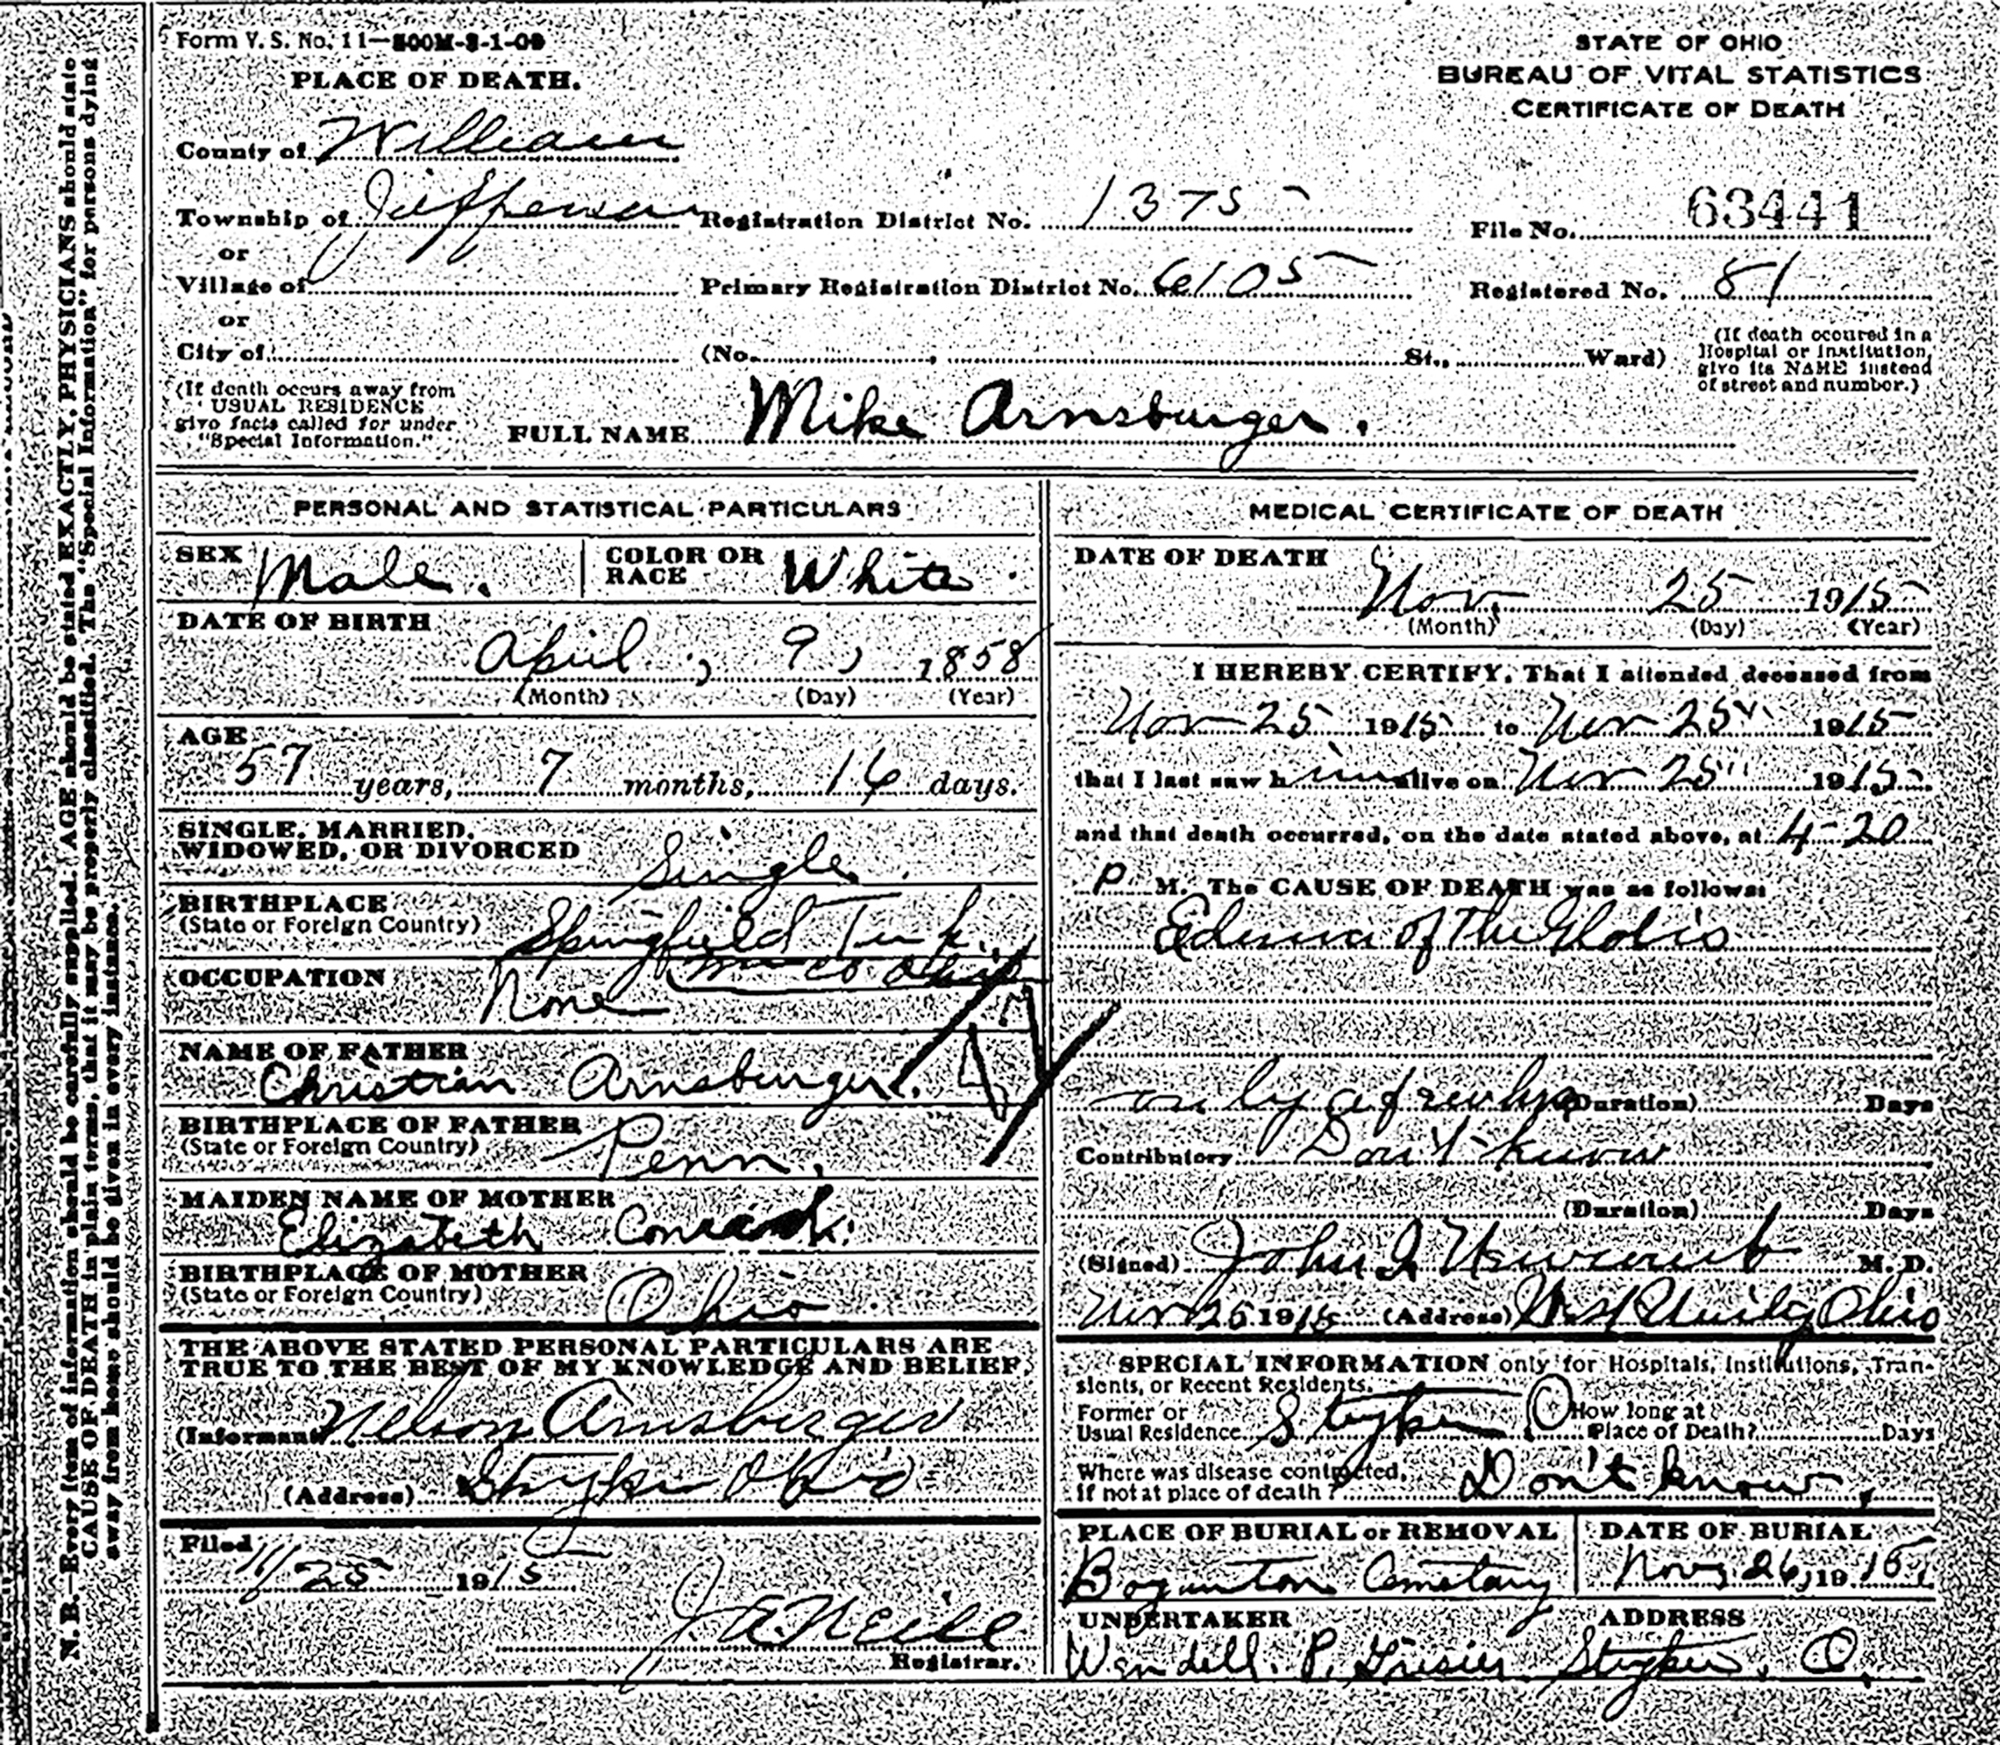 Form V. S. No. 11—500M-3-1-09
PLACE OF DEATH.
STATE OF OHIO
BUREAU OF VITAL STATISTICS
CERTIFICATE OF DEATH
County of Williams
Township of Jefferson Registration District No. 1375 File No. 63441
or
Village of Primary Registration District No. 6105 Registered No. 81
or
City of (No. , St., Ward)
(If death occured in a
Hospital or institution,
give its NAME instead
of street and number.)
(If death occurs away from
USUAL RESIDENCE
give facts called for under
"Special Information.")
FULL NAME Mike Arnsburger.
PERSONAL AND STATISTICAL PARTICULARS
SEX Male. COLOR OR RACE White
DATE OF BIRTH
April, 9, 1858
(Month) (Day) (Year)
AGE
57 years, 7 months, 16 days.
SINGLE, MARRIED,
WIDOWED, OR DIVORCED Single
BIRTHPLACE
(State or Foreign Country) Springfield
OCCUPATION Wm Co Ohio
None
NAME OF FATHER
Christian Arnsburger.
BIRTHPLACE OF FATHER
(State or Foreign Country) Penn.
MAIDEN NAME OF MOTHER
Elizabeth
BIRTHPLACE OF MOTHER
(State or Foreign Country) Ohio
THE ABOVE STATED PERSONAL PARTICULARS ARE
TRUE TO THE BEST OF MY KNOWLEDGE AND BELIEF
(Informant Nelson Arnsberger
(Address) Stryker Ohio
Filed
11/25 1915
J. A. Neise
Registrar.
MEDICAL CERTIFICATE OF DEATH
DATE OF DEATH
Nov. 25 1915
(Month) (Day) (Year)
I HEREBY CERTIFY, That I attended deceased from
Nov 25 1915 to Nov 25" 1915
that I last saw him alive on Nov 25" 1915
and that death occurred, on the date stated above, at 4-20
P M. The CAUSE OF DEATH was as follows:
Edema of the Glotis
only a few hrs (Duration) Days
Contributory Don't know
(Duration) Days
(Signed) John I Newcomb M. D.
Nov 25 1915 (Address) West Unity Ohio
SPECIAL INFORMATION only for Hospitals, Institutions, Tran-
sients, or Recent Residents.
Former or
Usual Residence Stryker O How long at
Place of Death? Days
Where was disease contracted,
if not at place of death? Don't know,
PLACE OF BURIAL or REMOVAL DATE OF BURIAL
Boynton Cemetary Nov, 26, 1915,
UNDERTAKER ADDRESS
Wendell. P. Grisier Stryker, O.
N. B.—Every item of information should be carefully supplied. AGE should be stated EXACTLY. PHYSICIANS should state
CAUSE OF DEATH in plain terms, that it may be properly classified. The "Special Information" for persons dying
away from home should be given in every instance.